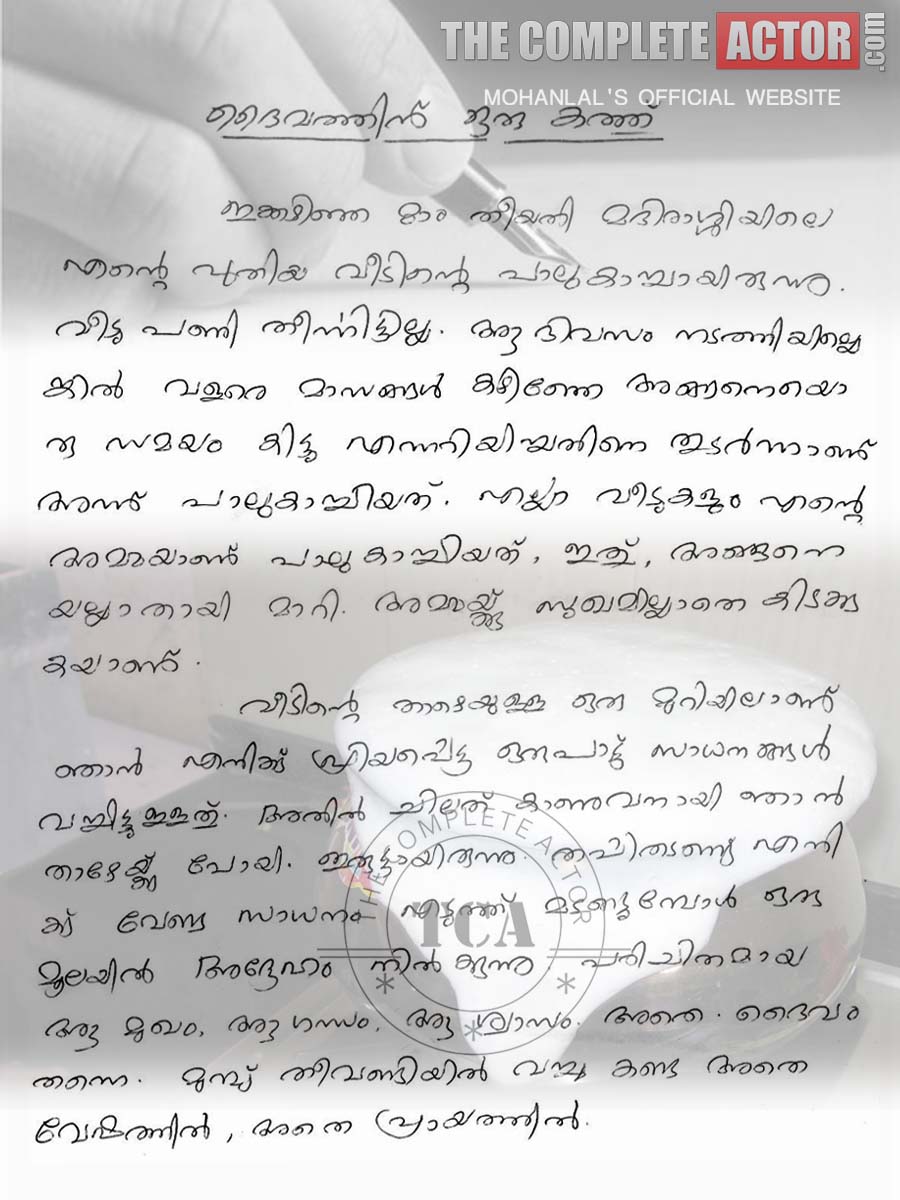 THE COMPLETE ACTOR.com
MOHANLAL'S OFFICIAL WEBSITE
ദൈവത്തിന് ഒരു കത്ത്
ഇക്കഴിഞ്ഞ തീയതി മദിരാശിയിലെ
എന്റെ പുതിയ വീടിന്റെ പാലുകാച്ചായിരുന്നു.
വീടു പണി തീർന്നിട്ടില്ല. ആ ദിവസം നടത്തിയില്ലെ
ങ്കിൽ വളരെ മാസങ്ങൾ കഴിഞ്ഞേ അങ്ങനെയൊ
രു സമയം കിട്ടൂ എന്നറിയിച്ചതിനെ തുടർന്നാണ്
അന്ന് പാലുകാച്ചിയത്. എല്ലാ വീടുകളും എന്റെ
അമ്മയാണ് പാലുകാച്ചിയത്, ഇത്, അങ്ങനെ
യല്ലാതായി മാറി. അമ്മയ്ക്കു സുഖമില്ലാതെ കിടക്കു
കയാണ്.
വീടിന്റെ താഴെയുള്ള ഒരു മുറിയിലാണ്
ഞാൻ എനിക്ക് പ്രിയപ്പെട്ട ഒരുപാട് സാധനങ്ങൾ
വച്ചിട്ടുള്ളത്. അതിൽ ചിലത് കാണുവനായി ഞാൻ
താഴേയ്ക്ക് പോയി. ഇരുട്ടായിരുന്നു. തപ്പിതടഞ്ഞു എനി
ക്ക് വേണ്ട സാധനം എടുത്ത് മടങ്ങുമ്പോൾ ഒരു
മൂലയിൽ അദ്ദേഹം നിൽക്കുന്നു. പരിചിതമായ
ആ മുഖം, ആ ഗന്ധം, ആ ശ്വാസം. അതെ. ദൈവം
തന്നെ. മുമ്പ് തീവണ്ടിയിൽ വച്ചു കണ്ട അതെ
വേഷത്തിൽ, അതെ പ്രായത്തിൽ.
THE COMPLETE ACTOR
TCA